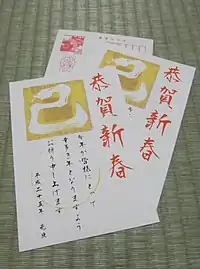 恭賀新春
己
今年が皆様にとって
幸多き年となりますよう
お祈り申し上げます
平成二十五年 元旦
恭賀新春